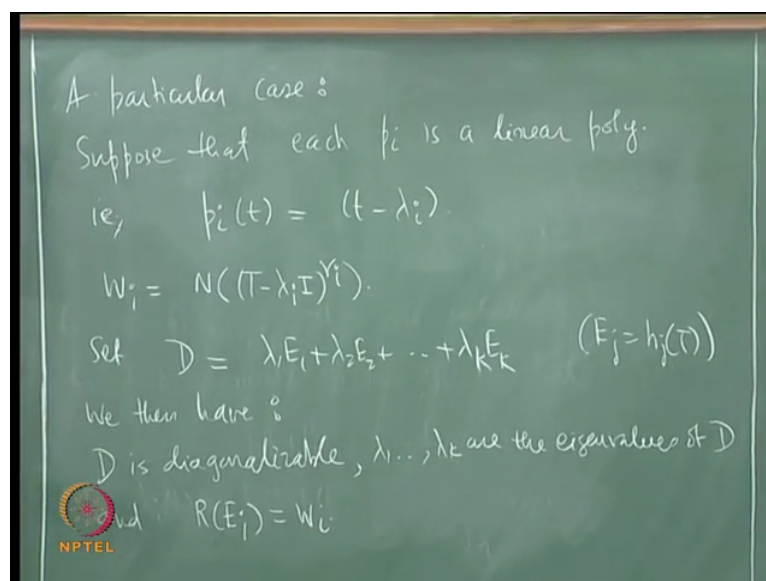 A particular case :
Suppose that each pi is a linear poly.
ie, pi(t) = (t - λi).
Wi = N((T-λiI)^ri).
Set D = λ1E1+λ2E2+ .. +λkEk (Ej = hj(T))
We then have :
D is diagonalizable, λ1..., λk are the eigenvalues of D
and R(Ei) = Wi.
NPTEL